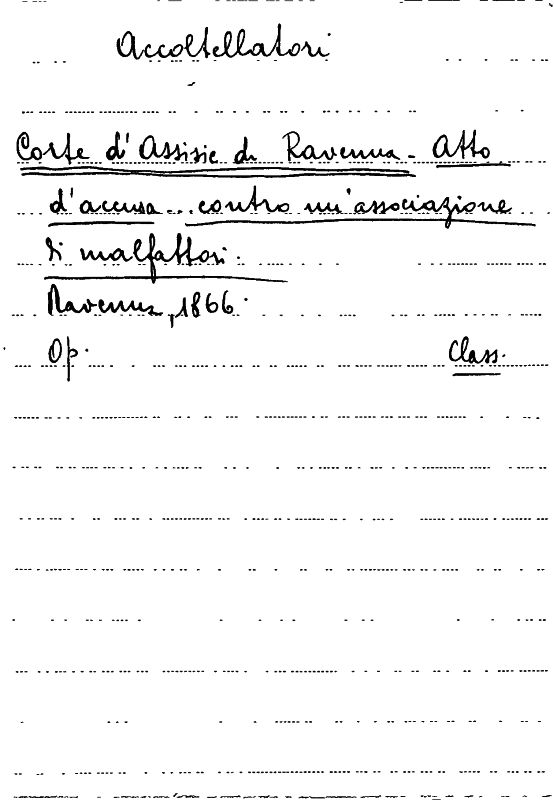 Accoltellatori
Corte d'Assisie di Ravenna - Atto
d'accusa... contro un'associazione
di malfattori.
Ravenna, 1866.
Op. Class.